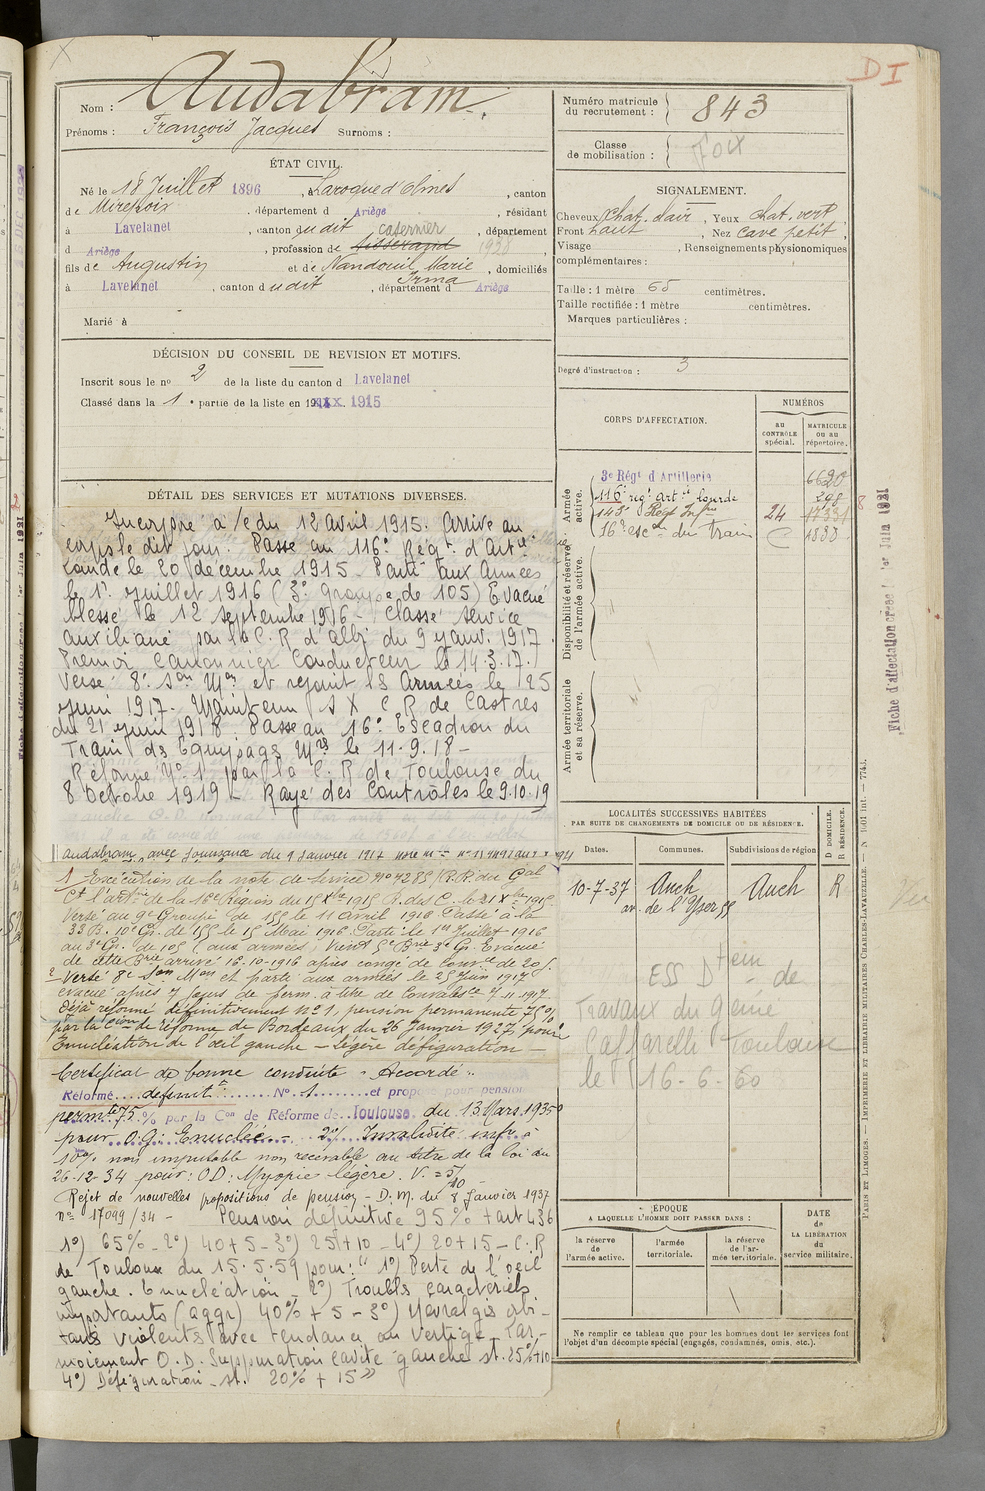 Audabram
D I
Nom :
Prénoms : François Jacques Surnoms :
ÉTAT CIVIL.
Né le 18 Juillet 1896, à Laroque d'Olmes, canton
de Mirepoix, département d Ariège, résidant
à Lavelanet, canton du dit casernier, département
d Ariège, profession de tisserand 1938,
fils de Augustin et de Nandouil Marie, domiciliés
Irma
à Lavelanet, canton du dit, département d Ariège
Marié à
DÉCISION DU CONSEIL DE REVISION ET MOTIFS.
Inscrit sous le no 2 de la liste du canton d Lavelanet
Classé dans la 1e partie de la liste en 19 1915
DÉTAIL DES SERVICES ET MUTATIONS DIVERSES.
Incorporé à /c du 12 Avril 1915. Arrivé au
corps le dit jour. Passé au 116e Régt. d'Artie
Lourde le 20 décembre 1915. Parti aux Armées
le 1r Juillet 1916 (3e groupe de 105) Evacué
blessé le 12 septembre 1916 - Classé service
auxiliaire par la C. R d'Albi du 9 Janv. 1917
Promu Canonnier Conducteur le 14.3.17.
Versé 8e Son Mon et rejoint les Armées le 25
Juin 1917. Maintenu S X C R de Castres
du 21 Juin 1918. Passé au 16e Escadron du
Train des Equipages Mres le 11-9.18 -
Réformé No 1 par la C. R de Toulouse du
8 Octobre 1919 - Rayé des Contrôles le 9-10.19
Audabram avec jouissance du 9 Janvier 1917
1 Exécution de la note de service No 4285/R.R. du Gal
Ct l'artie de la 16e Région du 15 Xbre 1915 R. des C. le 21 Xbre 1915
Versé au 9e Groupe de 155 le 11 Avril 1916 Passé à la
33 B. 10e Gr. de 155 le 15 Mai 1916. Parti le 1er Juillet 1916
au 3e Gr. de 105 (aux armées) Vient 5e Brie 3e Gr. Evacué
de cette Brie arrivé 16-10-1916 après congé de conv.ce de 20 j.
2 Versé 8e Son Mon et parti aux armées le 25 Juin 1917
évacué après 7 jours de perm. à titre de Convalesce 7-11-1917
Déjà réformé définitivement No 1, pension permanente 75%
par la Cion de réforme de Bordeaux du 26 Janvier 1927, pour
Enucléation de l'œil gauche - Légère défiguration -
Certificat de bonne conduite "Accordé".
Réformé définitt No 1 et propo pour pension
permte 75 % par la Con de Réforme de Toulouse du 13 Mars 1935
pour O.G. Enucléé - 2o/ Invalidité infre à
10% non imputable non recevable au titre de la loi du
26-12-34 pour : O.D : Myopie légère. V. = 5/10 -
Rejet de nouvelles propositions de pension - D.M. du 8 Janvier 1937
no 17099/34 - Pension définitive 95% + art 436
1o) 65% - 2o) 40+5 - 3o) 25+10 - 4o) 20+15 - C.R
de Toulouse du 15.5.59 pour : "1o) Perte de l'oeil
gauche. Enucléation - 2o) Troubles caractériels
importants (aggr) 40% + 5 - 3o) Nevralgies orbi-
taires violents avec tendance au vertige - Lar-
moiement O.D. Suppuration cavité gauche st. 25%+10
4o) Défiguration - st. 20% + 15"
Numéro matricule
du recrutement : 843
Classe
de mobilisation : Foix
SIGNALEMENT.
Cheveux chat. clair, Yeux chat. vert
Front haut, Nez cavé petit,
Visage , Renseignements physionomiques
complémentaires :
Taille : 1 mètre 65 centimètres.
Taille rectifiée : 1 mètre centimètres.
Marques particulières :
Degré d'instruction : 3
CORPS D'AFFECTATION.
NUMÉROS
AU CONTRÔLE spécial.
MATRICULE OU AU répertoire.
Armée active.
3e Régt d'Artillerie 6620
116e régt artie lourde 298
143e Régt Infie 24 17331
16e escon du Train 4838
Disponibilité et réserve de l'armée active.
Armée territoriale et sa réserve.
LOCALITÉS SUCCESSIVES HABITÉES
PAR SUITE DE CHANGEMENTS DE DOMICILE OU DE RÉSIDENCE.
Dates. Communes. Subdivisions de région D DOMICILE. R RÉSIDENCE.
10-7-37 Auch Auch R
av. de l'Yser 55
ESS Dtem de
Travaux du génie
Caffarelli Toulouse
le 16-6-60
ÉPOQUE
A LAQUELLE L'HOMME DOIT PASSER DANS :
DATE de LA LIBÉRATION du service militaire.
la réserve de l'armée active.
l'armée territoriale.
la réserve de l'armée territoriale.
Ne remplir ce tableau que pour les hommes dont les services font
l'objet d'un décompte spécial (engagés, condamnés, omis, etc.).
Fiche d'affectation créée le 1er Juin 1931
8
PARIS ET LIMOGES. — IMPRIMERIE ET LIBRAIRIE MILITAIRES CHARLES-LAVAUZELLE.